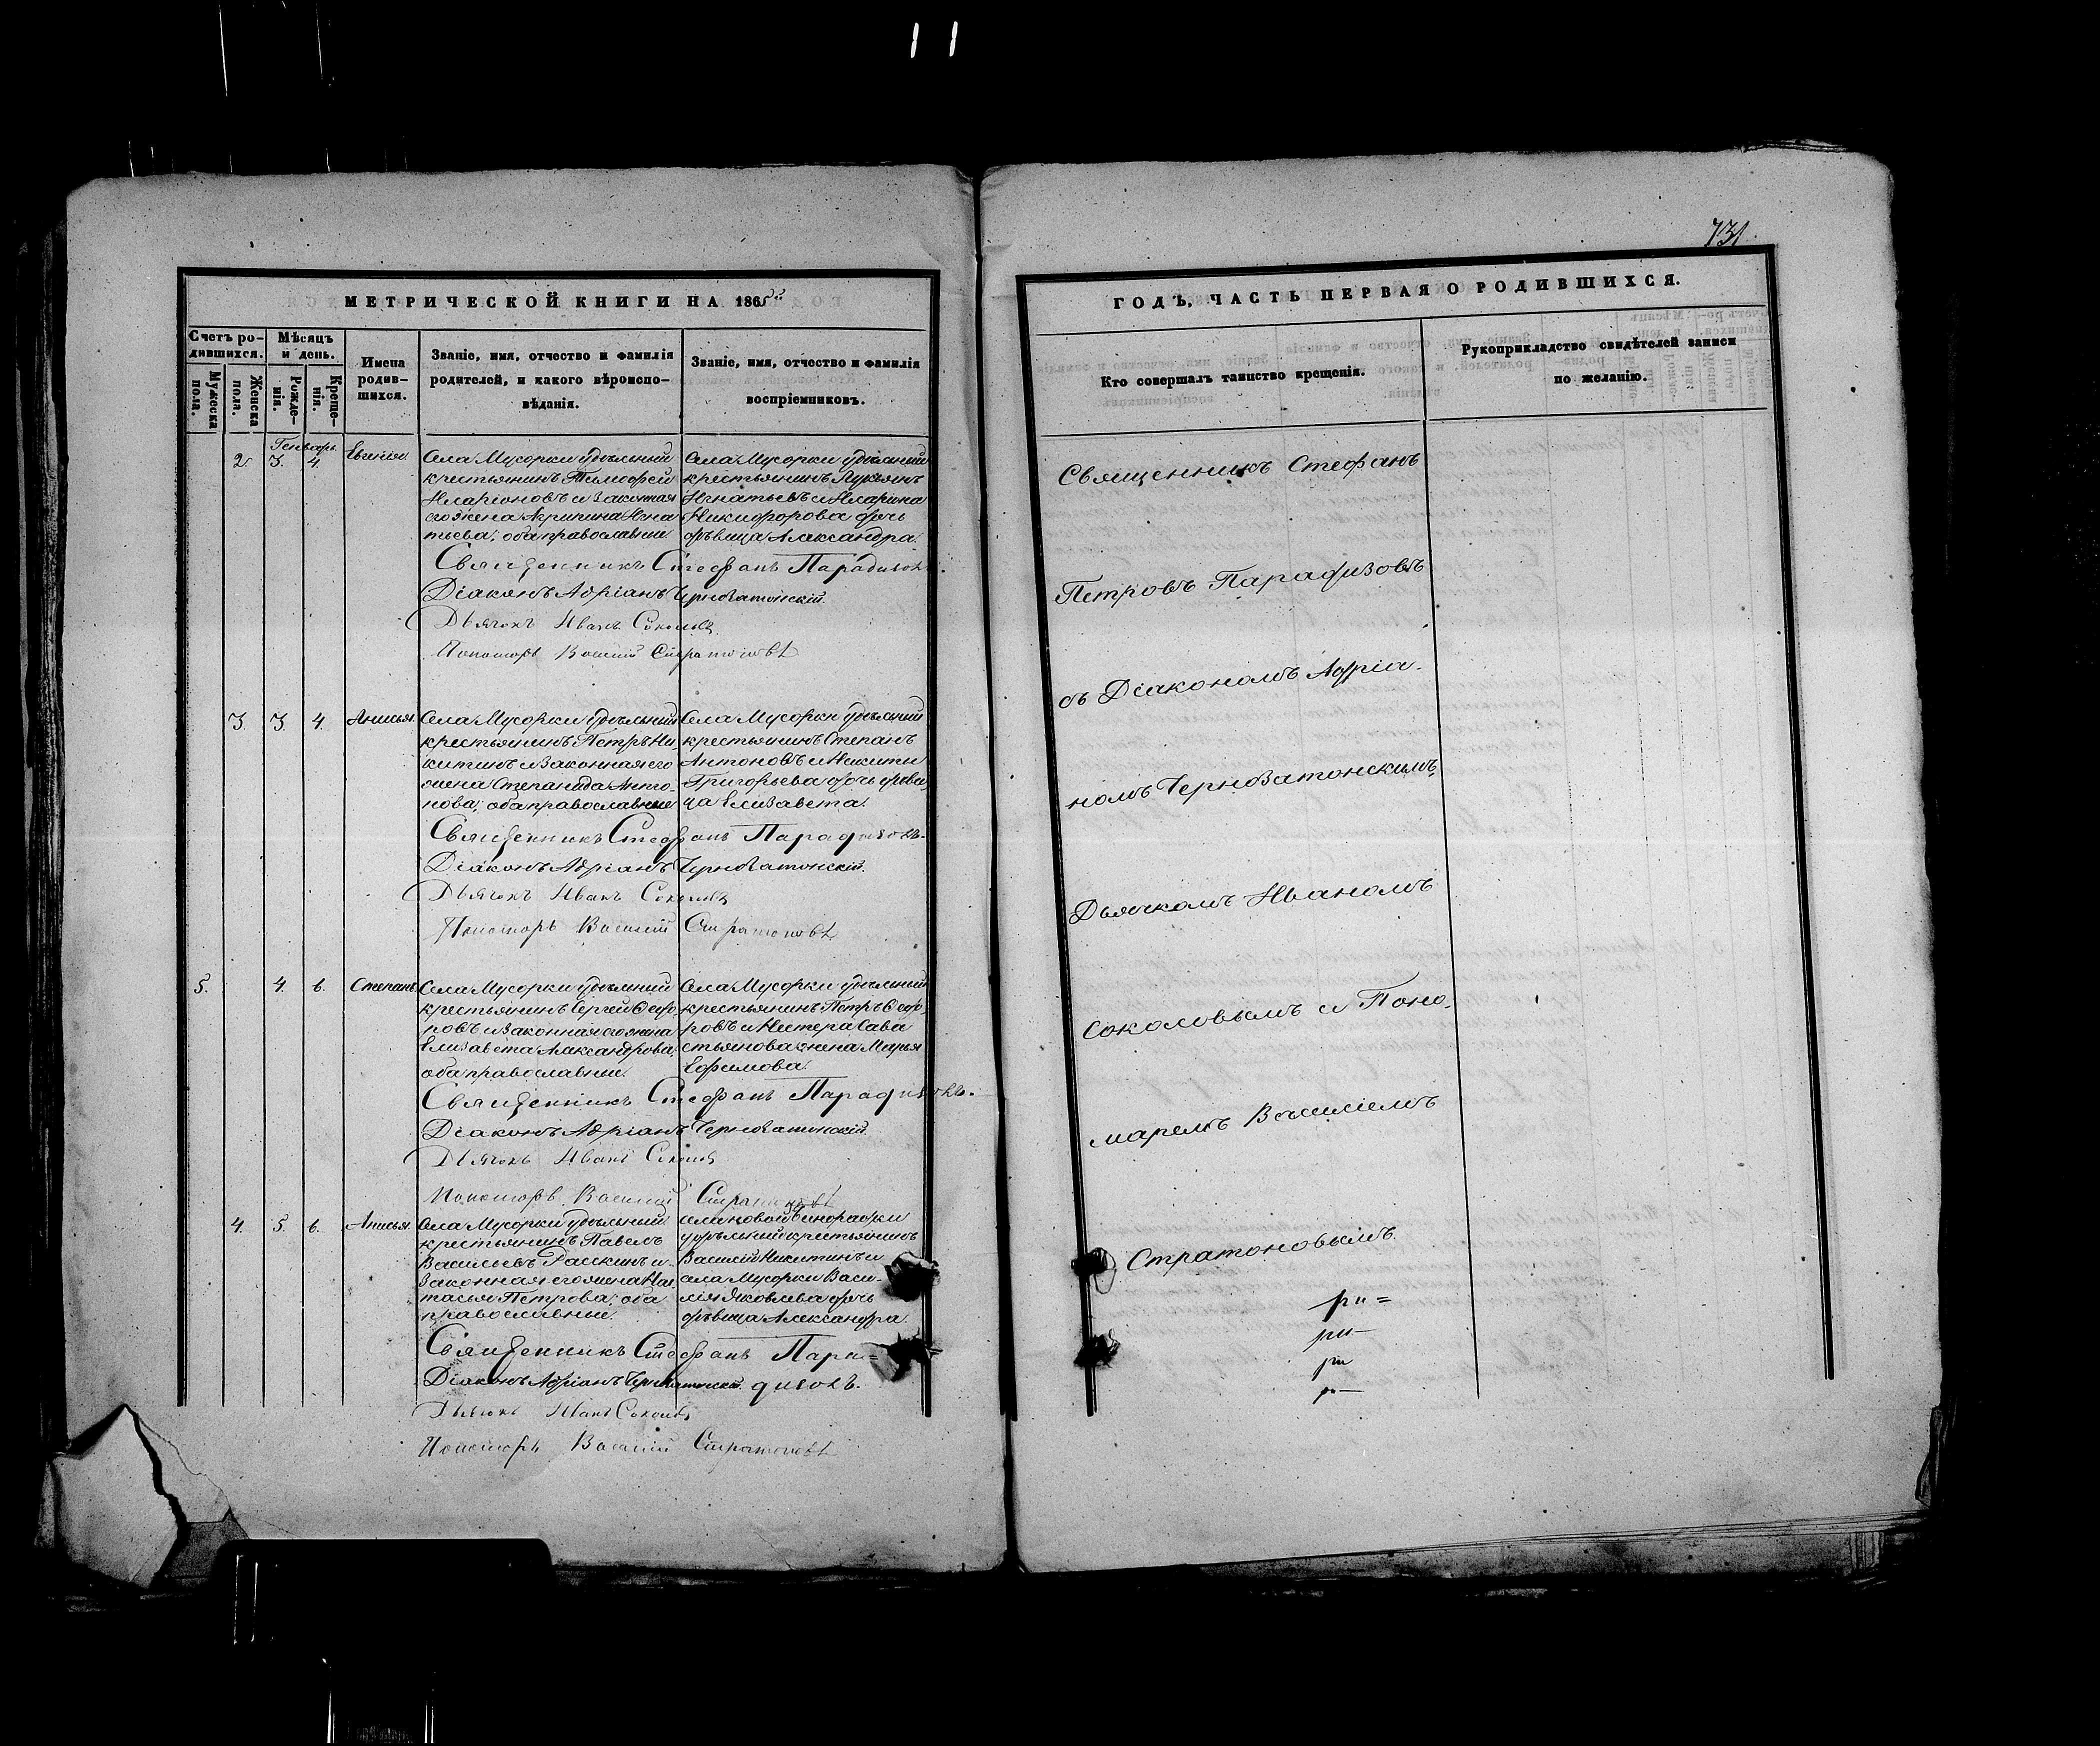 731
МЕТРИЧЕСКОЙ КНИГИ НА 1865й
Счетъ ро-
дившихся.
Мужеска
пола.
Женска
пола.
Мѣсяцъ
и день.
Рожде-
нія.
Креще-
нія.
Имена
родив-
шихся.
Званіе, имя, отчество и фамилія
родителей, и какого вѣроиспо-
вѣданія.
Званіе, имя, отчество и фамилія
воспріемниковъ.
Генварь.
2. 3. 4. Евгенія
Села Мусорки удѣльный
крестьянинъ Тимофей
Иларіоновъ и законная
его жена Агрипина Игна
тьева; оба православные
Села Мусорки удѣльный
крестьянинъ Лукьянъ
Игнатьевъ и Иларіона
Никифорова дочь
дѣвица Александра.
Священникъ Стефанъ Парадизовъ
Діаконъ Адріанъ Чернозатонскій.
Дьячокъ Иванъ Соколовъ
Пономарь Василій Стратоновъ
3. 3. 4. Анисья.
Села Мусорки удѣльный
крестьянинъ Петръ Ни-
китинъ и законная его
жена Степанида Анто-
нова; оба православные
Села Мусорки удѣльный
крестьянинъ Степанъ
Антоновъ и Никиты
Григорьева дочь дѣви-
ца Елизавета.
Священникъ Стефанъ Парадизовъ.
Діаконъ Адріанъ Чернозатонскій.
Дьячокъ Иванъ Соколовъ
Пономарь Василій Стратоновъ
5. 4. 6. Степанъ
Села Мусорки удѣльный
крестьянинъ Сергей Федо-
ровъ и законная его жена
Елизавета Александрова;
оба православные.
Села Мусорки удѣльный
крестьянинъ Петръ Федо-
ровъ и Нестера Сава
стьянова жена Марья
Ефимова.
Священникъ Стефанъ Парадизовъ.
Діаконъ Адріанъ Чернозатонскій.
Дьячокъ Иванъ Соколовъ
Пономарь Василій Стратоновъ
4. 5. 6. Анисья.
Села Мусорки удѣльный
крестьянинъ Павелъ
Васильевъ и
законная его жена Нас
тасья Петрова; оба
православные.
села новой
удѣльный крестьянинъ
Василій Никитинъ и
села Мусорки Васи-
лія Яковлева дочь
дѣвица Александра.
Священникъ Стефанъ Пара=
Діаконъ Адріанъ Чернозатонскій. дизовъ.
Дьячокъ Иванъ Соколовъ
Пономарь Василій Стратоновъ
ГОДЪ, ЧАСТЬ ПЕРВАЯ О РОДИВШИХСЯ.
Кто совершалъ таинство крещенія.
Рукоприкладство свидѣтелей записи
по желанію.
Священникъ Стефанъ
Петровъ Парадизовъ
съ Діакономъ Адріа-
номъ Чернозатонскимъ,
Дьячкомъ Иваномъ
Соколовымъ и Поно-
маремъ Василіемъ
Стратоновымъ.